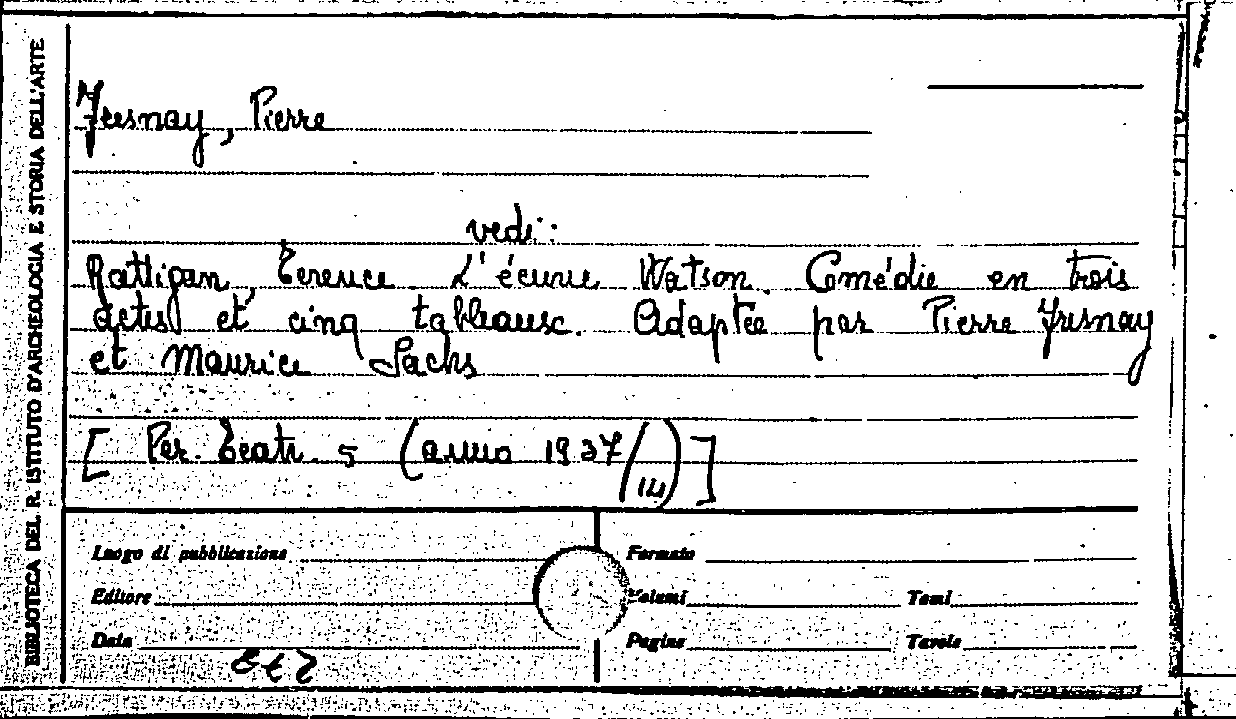 BIBLIOTECA DEL R. ISTITUTO D'ARCHEOLOGIA E STORIA DELL'ARTE
Fresnay, Pierre
vedi:
Rattigan, Terence. L'écurie Watson. Comédie en trois
actes et cinq tableausc. Adaptée par Pierre Fresnay
et Maurice Sachs
[ Per. Teatr. 5 (anno 1937/III) ]
Luogo di pubblicazione
Formato
Editore
Volumi
Tomi
Data
Pagine
Tavole